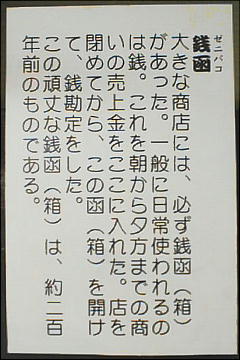 ゼニバコ
銭函
大きな商店には、必ず銭函（箱）
があった。一般に日常使われるの
は銭。これを朝から夕方までの商
いの売上金をここに入れた。店を
閉めてから、この函（箱）を開け
て、銭勘定をした。
この頑丈な銭函（箱）は、約二百
年前のものである。